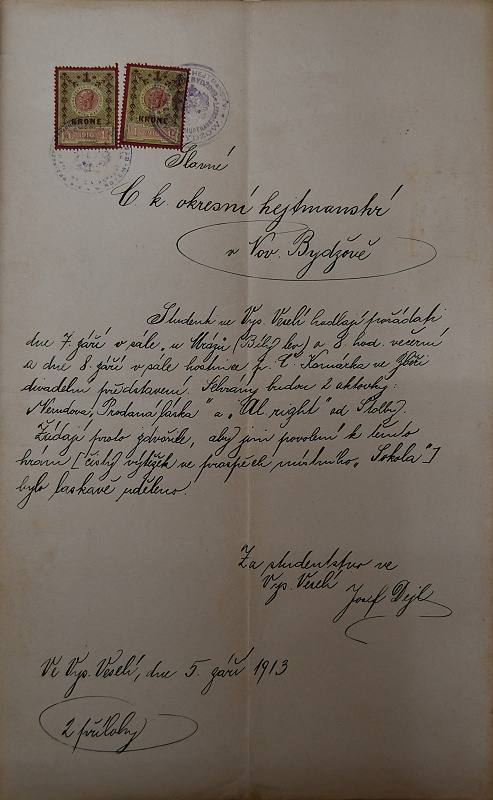 1 1
KRONE KRONE
1 1910 1 1 1910 1
Slavné
C. k. okresní hejtmanství
v Nov. Bydžově
Studenti ve Vys. Veselí hodlají pořádati
dne 7. září v sále „u Mrazů (Bílý lev) o 8 hod. večerní
a dne 8. září v sále hostince p. Č. Komárka ve Zboří
divadelní představení. Sehrány budou 2 aktovky:
Nerudova „Prodaná láska" a „Al right" od Štolby.
Žádají proto zdvořile, aby jim povolení k těmto
hrám [čistý výtěžek ve prospěch místního „Sokola"]
bylo laskavě uděleno.
Za studentstvo ve
Vys. Veselí
Josef Dejl
Ve Vys. Veselí, dne 5. září 1913
2 přílohy